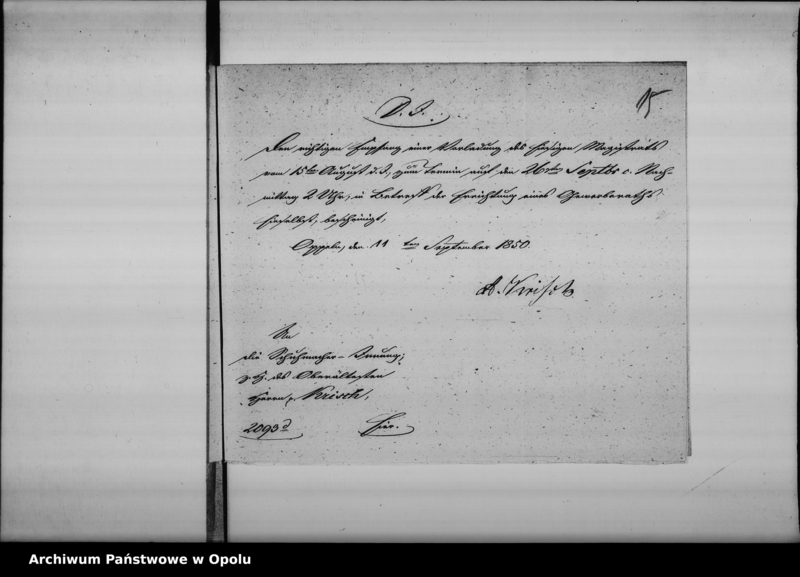 D. J.
15
Den richtigen Empfang einer Vorladung des hiesigen Magistrats
vom 15ten August d. J., zum Termin auf den 26sten Septbr c. Nach-
mittag 2 Uhr, in Betreff der Errichtung eines Gewerberaths
hieselbst, bescheinigt,
Oppeln, den 11ten September 1850.
A. Kirisch
An
die Schuhmacher-Innung,
z. H. des Oberältesten
Herrn Krisch,
2093
hier.
Archiwum Państwowe w Opolu